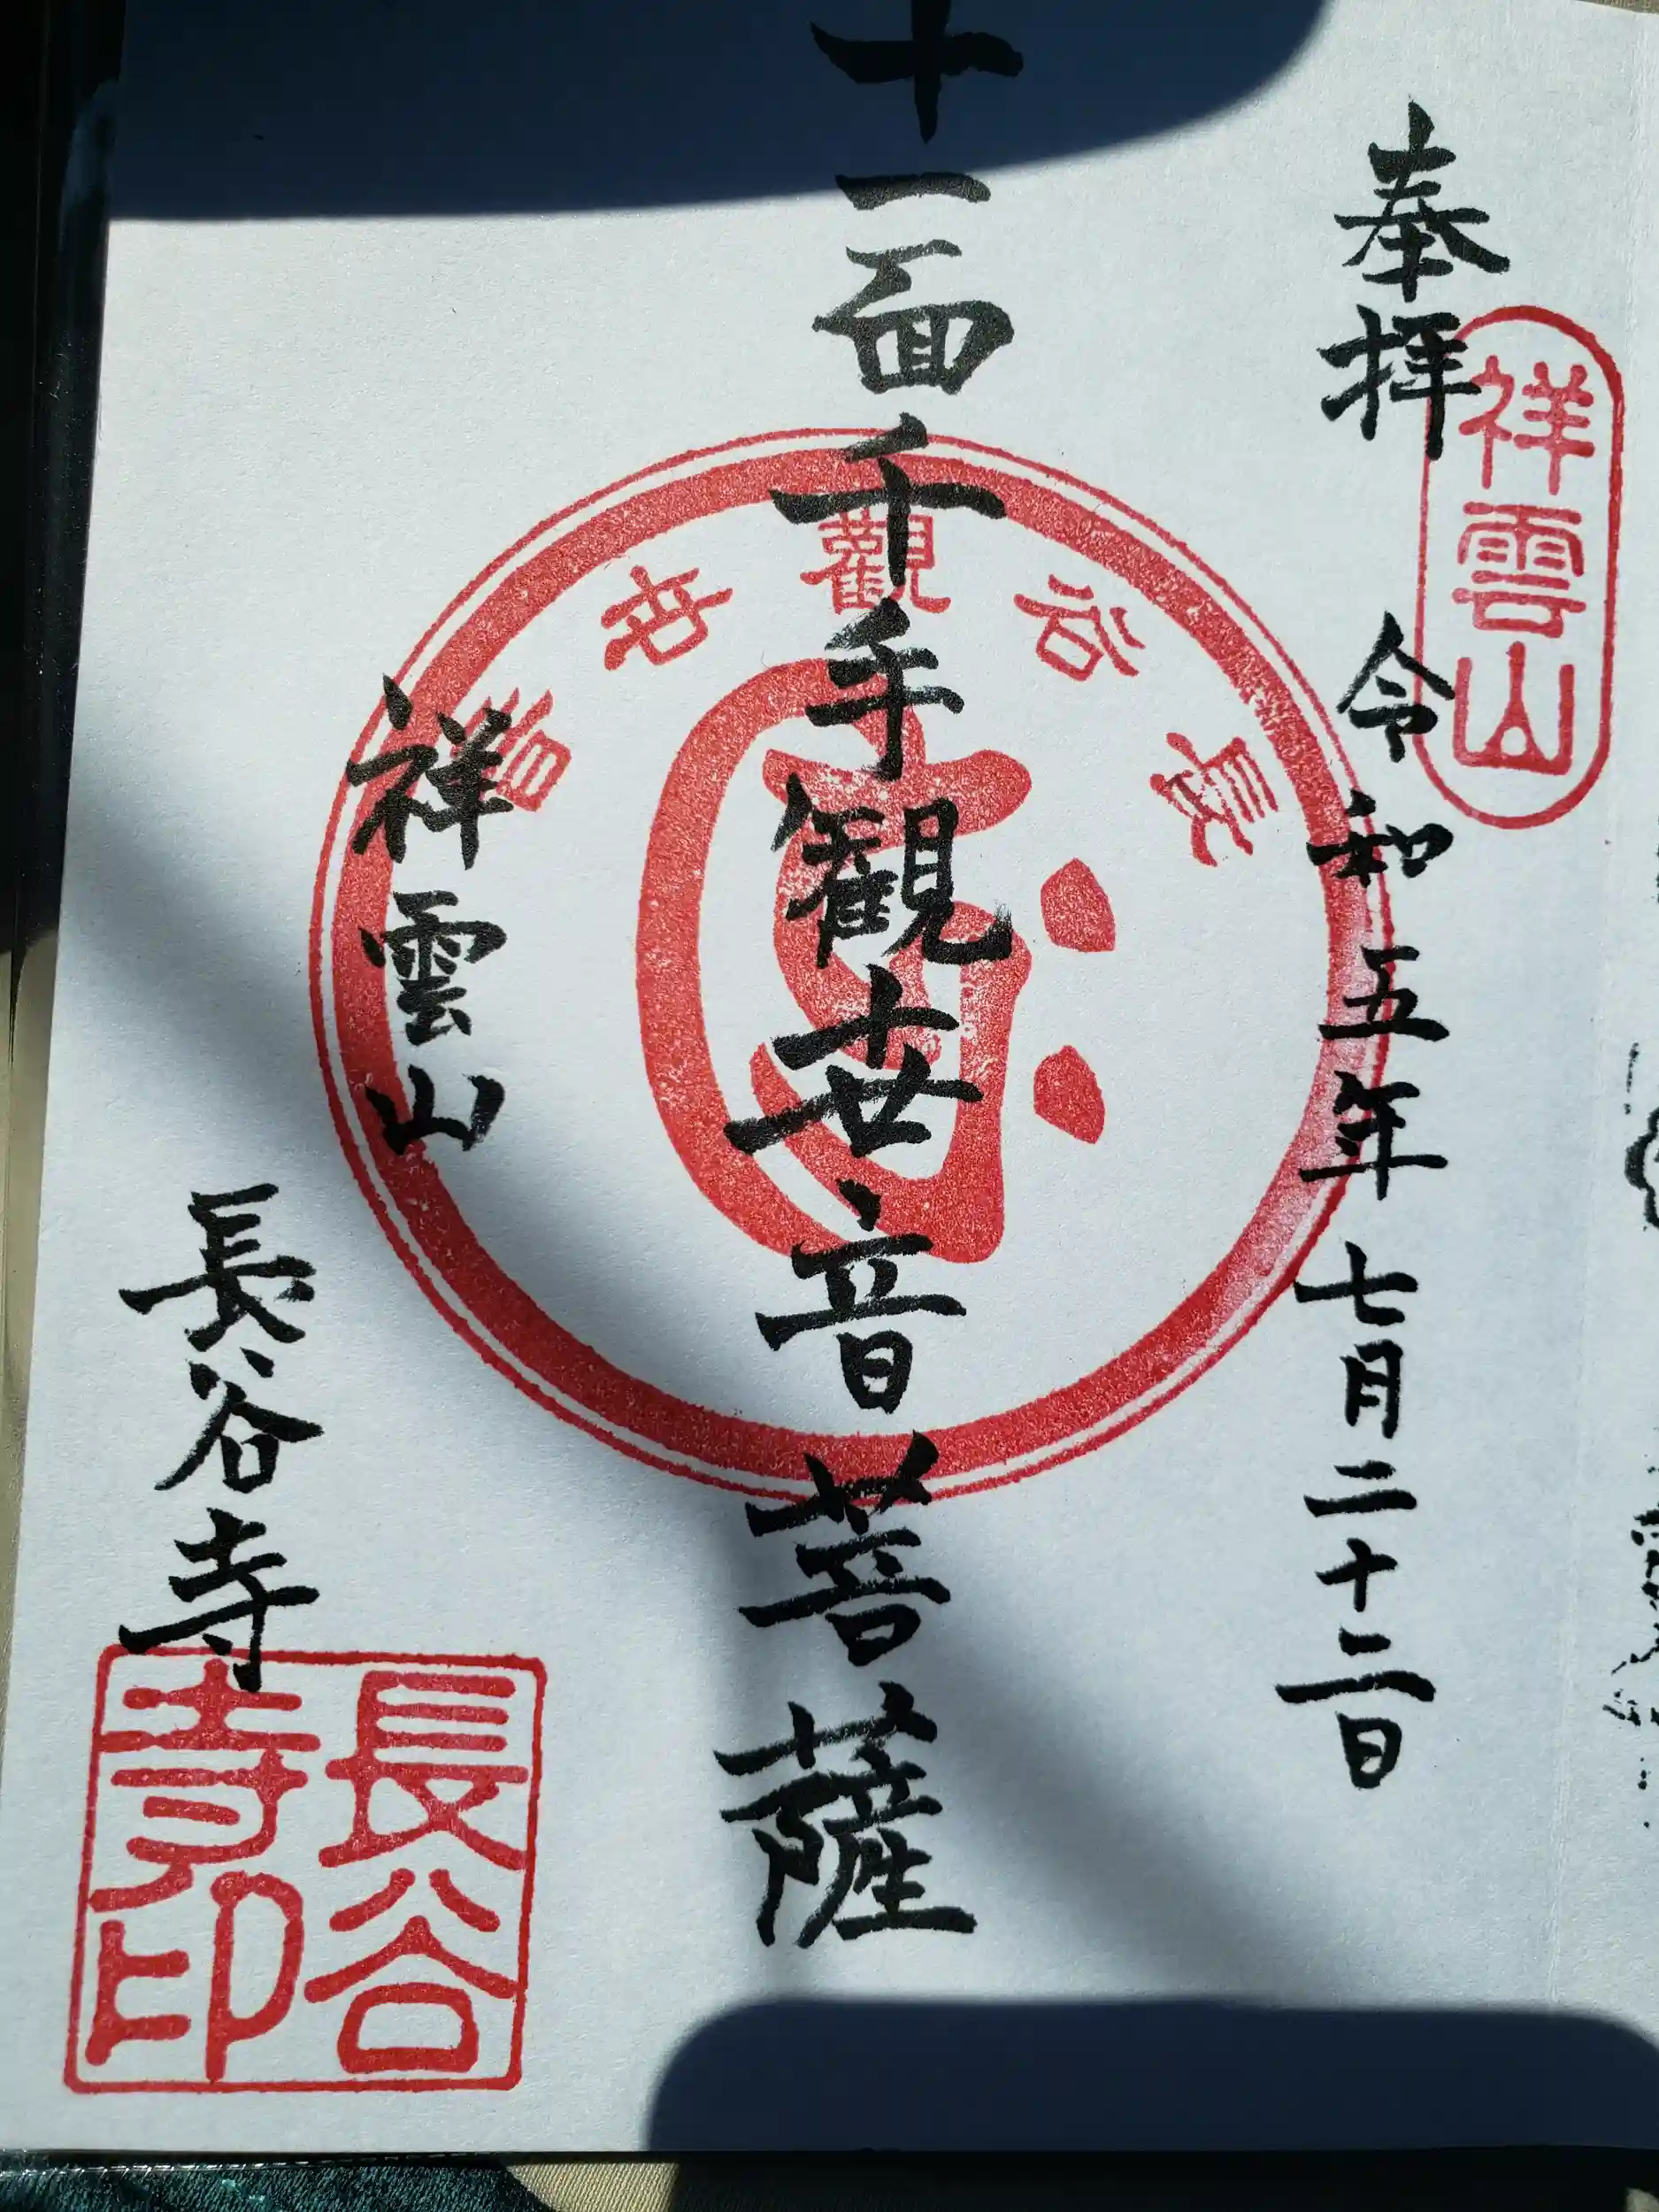 祥雲山
奉拝
令和五年七月二十二日
十一面千手観世音菩薩
長谷觀世音
祥雲山
長谷寺
長谷寺印